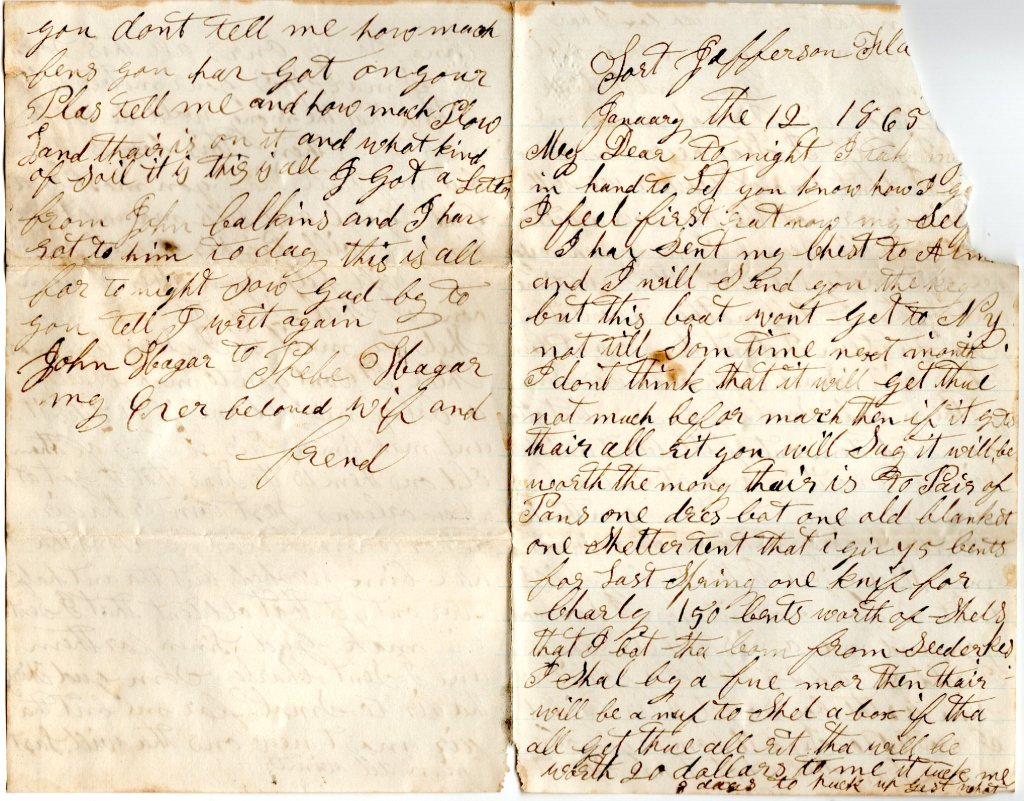 you dont tell me how much
fens you har got on your
Plas tell me and how much Plow
Land thair is on it and what kind
of soil it is this is all I got a Letter
from John Calkins and I har
rot to him to day this is all
for to night Sow gud by to
you tell I writ again
John Hagar to Phebe Hagar
my Ever beloved wif and
frend
Fort Jefferson Fla
January the 12 1865
My Dear to night I tak my
in hand to Let you know how I
I feel first rat now my Self
I har Sent my Chest to
and I will Send you the key
but this boat wont get to N y
not till Som time next month
I dont think that it will get thue
not much befor march then if it gets
thair all rit you will Say it will be
worth the mony thair is to Pair of
Pans one dres Cot one old blanket
one Shelter tent that i gir 75 Cents
for Last Spring one knif for
Charly 150 Cents worth of Shels
that I bot tha Com from Seederkes
I Shal by a fue mor then thair
will be a nuf to Shel a box if tha
all get thue all rit tha will be
worth 20 dollars to me it tuck me
3 days to puck up Just what